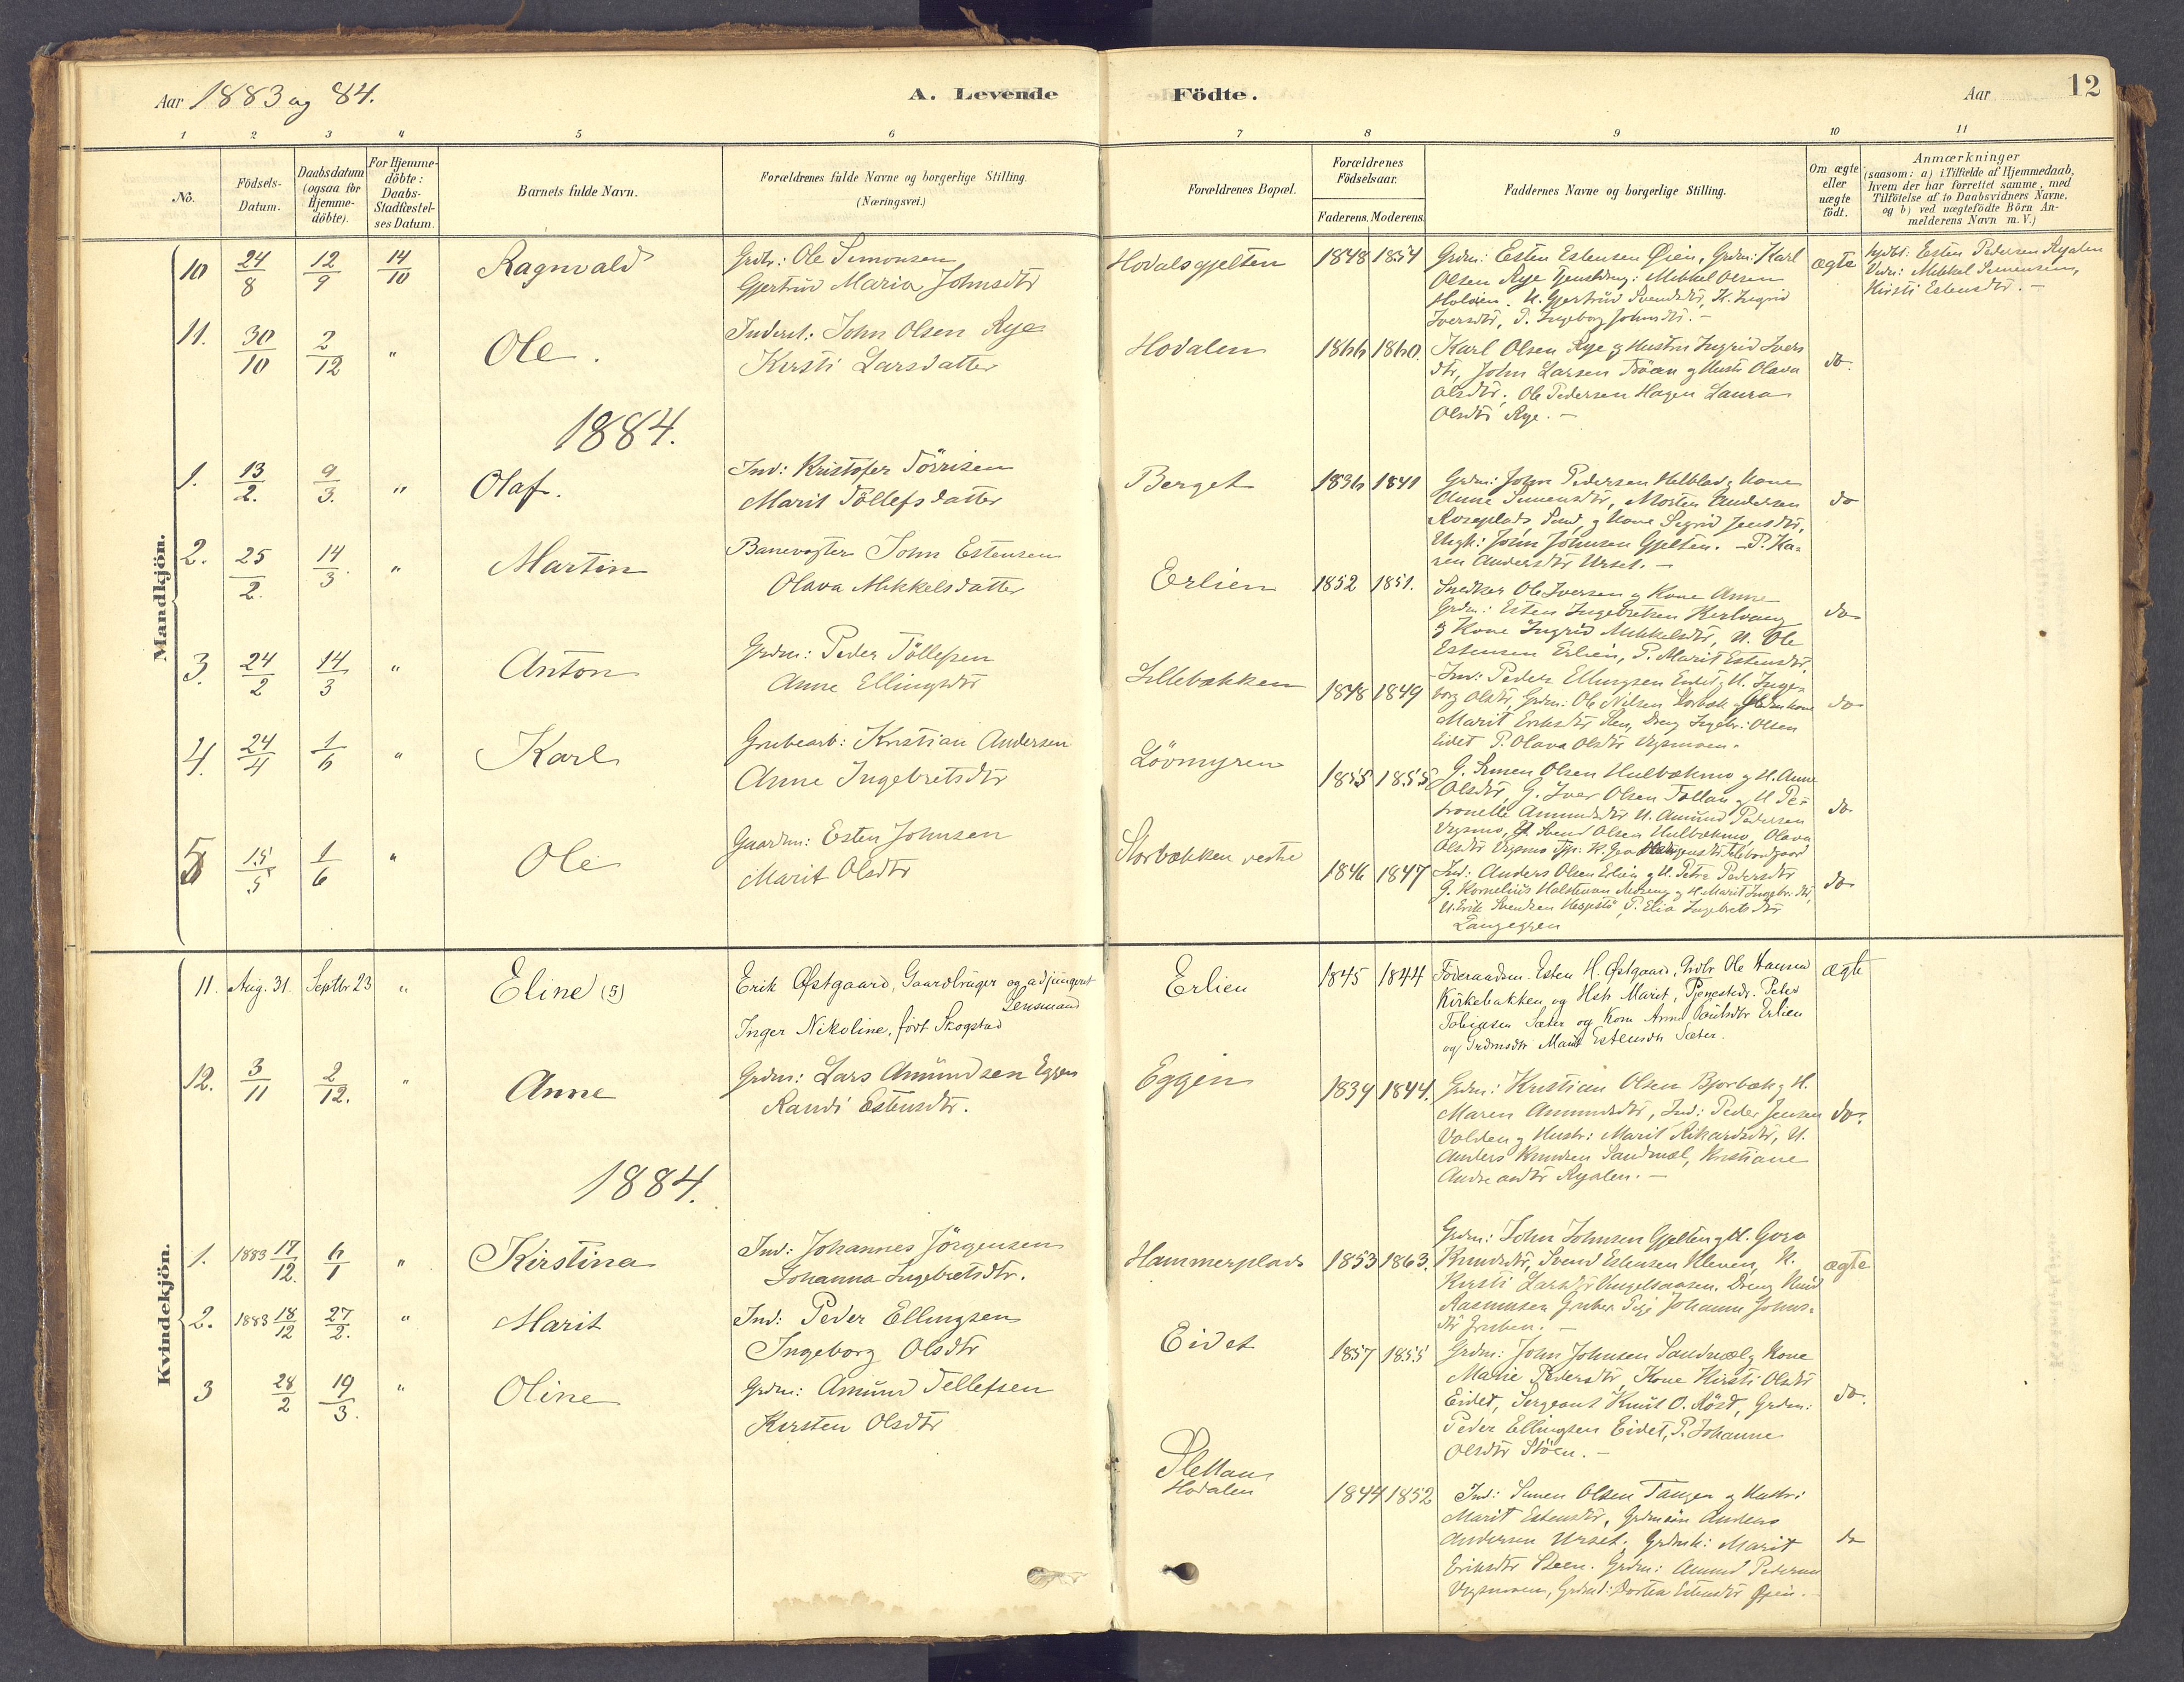 Aar 1883 og 84.
A. Levende Födte.
Aar
12
1 2 3 4 5 6 7 8 9 10 11
No.
Födsels-Datum.
Daabsdatum (ogsaa for Hjemme-döbte).
For Hjemme-döbte: Daabs-Stadfæstel-ses Datum.
Barnets fulde Navn.
Forældrenes fulde Navne og borgerlige Stilling.
(Næringsvei.)
Forældrenes Bopæl.
Forældrenes Födselsaar.
Faderens. Moderens.
Faddernes Navne og borgerlige Stilling.
Om ægte eller uægte födt.
Anmærkninger
(saasom: a) i Tilfælde af Hjemmedaab,
hvem der har forrettet samme, med
Tilföielse af to Daabsvidners Navne.
og b) ved uægtefödte Börn An-
melderens Navn m. V.)
Mandkjön.
10 24/8 12/9 14/10 Ragnvald
Grdbr: Ole Simonsen
Gjertrud Maria Johnsdtr
Hodalsgjelten 1848 1854
Grdm: Esten Estensen Øien, Grdm: Karl
Olsen Rye Tjenstdreng: Mikkel Olsen
Holøien. U. Gjertrud Svendsdtr, K. Ingrid
Iversdtr, P. Ingeborg Johnsdtr. —
ægte
hjdbt: Esten Pedersen Ryalen
Vidn: Mikkel Simensen,
Kirsti Estensdtr. —
11. 30/10 2/12 " Ole.
Inderst: John Olsen Rye
Kirsti Larsdatter
Hodalen 1866 1860.
Karl Olsen Rye og Hustru Ingrid Ivers
dtr, John Larsen Tröen og Hustr Olava
Olsdtr, Ole Pedersen Hagen Laura
Olsdtr Rye. —
do.
1884.
1. 13/2. 9/3. " Olaf.
Ind: Kristofer Törrisen
Marit Töllefsdatter
Berget 1836 1841
Grdm: John Pedersen Kelblad, Kone
Anne Simensdtr, Morten Andersen
Roseplads Ind, og Kone Sigrid Jensdtr,
Ungk: John Johnsen Gjelten. — P. Ka-
ren Andersdtr Urset. —
do
2. 25/2. 14/3. " Martin
Banevogter John Estensen
Olava Mikkelsdatter
Erlien 1852 1851.
Snedker Ole Iversen og Kone Anne
Grdm: Esten Ingebretsen Kerlvang
og Kone Ingrid Mikkelsdtr, U. Ole
Estensen Erlien, P. Marit Estensdtr.
do
3. 24/2 14/3 " Anton
Grdm: Peder Töllefsen
Anne Ellingsdtr
Lillebækken 1848 1849
Ind: Peder Ellingsen Eidet, U. Inge-
borg Olsdtr, Grdm: Ole Nilsen Storbæk
Marit Eriksdtr Steen, Dreng Ingebr: Olsen
Eidet P. Olava Olsdtr Vegsmoen.
do
4. 24/4 1/6 " Karl
Grubearb: Kristian Andersen
Anne Ingebretsdtr
Lövmyren 1855 1855
G. Simen Olsen Hulbækmo og H. Anne
Olsdtr, G. Iver Olsen Tollan og H Pe-
tronelle Amundsdtr U. Amund Pedersen
Vegsmo, Svend Olsen Hulbækmo, Olava
Olsdtr Vegsmo
do
5 15/5 1/6 " Ole
Gaardm: Esten Johnsen
Marit Olsdtr
Storbækken vestre 1846 1847
Ind: Anders Olsen Erlien og H. Petra Pedersdtr
G. Kornelius Halstensen Moseng og H. Marit Ingebr. dtr,
U. Erik Svendsen P. Elia Ingebretsdtr
Langeggen
do
Kvindekjön.
11. Aug. 31. Septbr 23 " Eline (5)
Erik Østgaard, Gaardbruger og adjungeret
Lensmand
Inger Nikoline, født Skogstad
Erlien 1845 1844
Föderaadsm. Esten H. Østgaard, Grdbr Ole Hansen
Kirkebakken og Hstr Marit, Tjenestedr. Peter
Tobiasen Sæter og Kone Anne Erlien
og Grdmsdtr Marit Estensdtr Sæter.
ægte
12. 3/11 2/12. " Anne
Grdm: Lars Amundsen Eggen
Randi Estensdtr.
Eggen 1839 1844.
Grdm: Kristian Olsen Bjorbæk og H.
Maren Amundsdtr, Ind: Peder Jensen
Volden og Hustr: Marit Rikardsdtr, U.
Anders Knudsen Sandmæl, Kristiane
Andreasdtr Ryalen. —
do.
1884.
1. 1883 17/12. 6/1 " Kirstina
Ind: Johannes Jörgensen
Johanna Ingebretsdtr.
Hammerplads 1853 1863.
Grdm: John Johnsen Gjelten og H. Goro
Knudsdtr, Svend Estensen Kleven, U.
Kirsti Larsdtr Vingelsaasen. Dreng Knud
Rasmussen Gruben Pige Johanne Johns-
dtr Gruben. —
ægte
2. 1883 18/12 27/2. " Marit
Ind: Peder Ellingsen
Ingeborg Olsdtr
Eidet 1857 1855
Grdm: John Johnsen Sandmæl og Kone
Malie Pedersdtr, Kone Kirsti Olsdtr
Eidet, Sergeant Knut O. Röst, Grdm:
Peder Ellingsen Eidet, P. Johanne
Olsdtr Stöen. —
do.
3 28/2 19/3. " Oline
Grdm: Amund Tellefsen
Kirsten Olsdtr
Slettan
Hodalen 1844 1852
Ind: Simen Olsen Tangen og Hustr:
Marit Estensdtr, Grdmsön Anders
Andersen Urset, Grdmk: Marit
Eriksdtr Steen. Grdm: Amund Pedersen
Vegsmoen, Grdmd: Dortea Estensdtr Øien. —
do